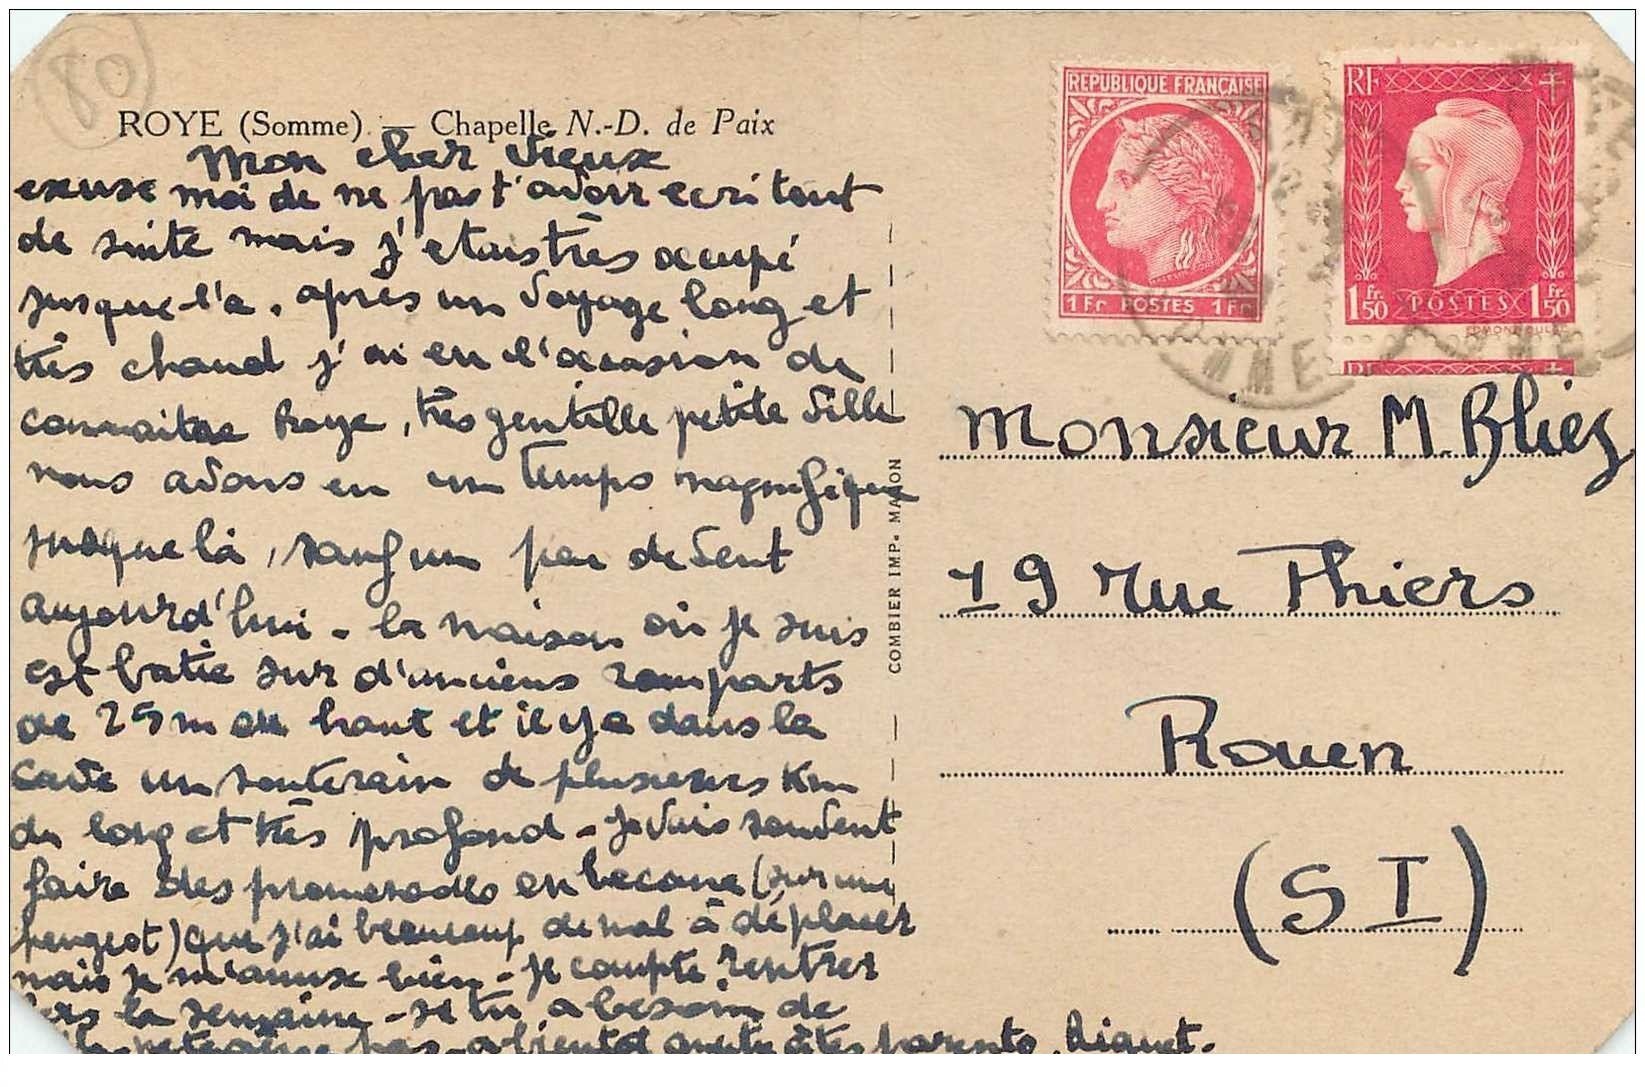 80
ROYE (Somme) — Chapelle N.-D. de Paix
Mon cher vieux
excuse moi de ne pas t'avoir ecri tout
de suite mais j'etais très occupé
jusque-l'a. après un voyage long et
très chaud j'ai eu l'occasion de
connaitre Roye, très gentille petite ville
nous avons eu un temps magnifique
jusque là, sauf un peu de vent
aujourd'hui - la maison où je suis
est batie sur d'anciens remparts
de 25 m de haut et il y a dans la
cave un souterain de plusieurs Km
de long et très profond - je vais souvent
faire des promenades en becane (sur une
peugeot) que j'ai beaucoup de mal à déplacer
mais je m'amuse bien - je compte rentrer
vers la semaine - si tu a besoin de
pas - a bientot tes parents. Riquet.
COMBIER IMP. MACON
REPUBLIQUE FRANÇAISE
1 Fr POSTES 1 Fr
RF
1 Fr. 50 POSTES 1 Fr. 50
EDMOND DULAC
RF
MME
Monsieur M. Bliez
19 rue Thiers
Rouen
(S I)